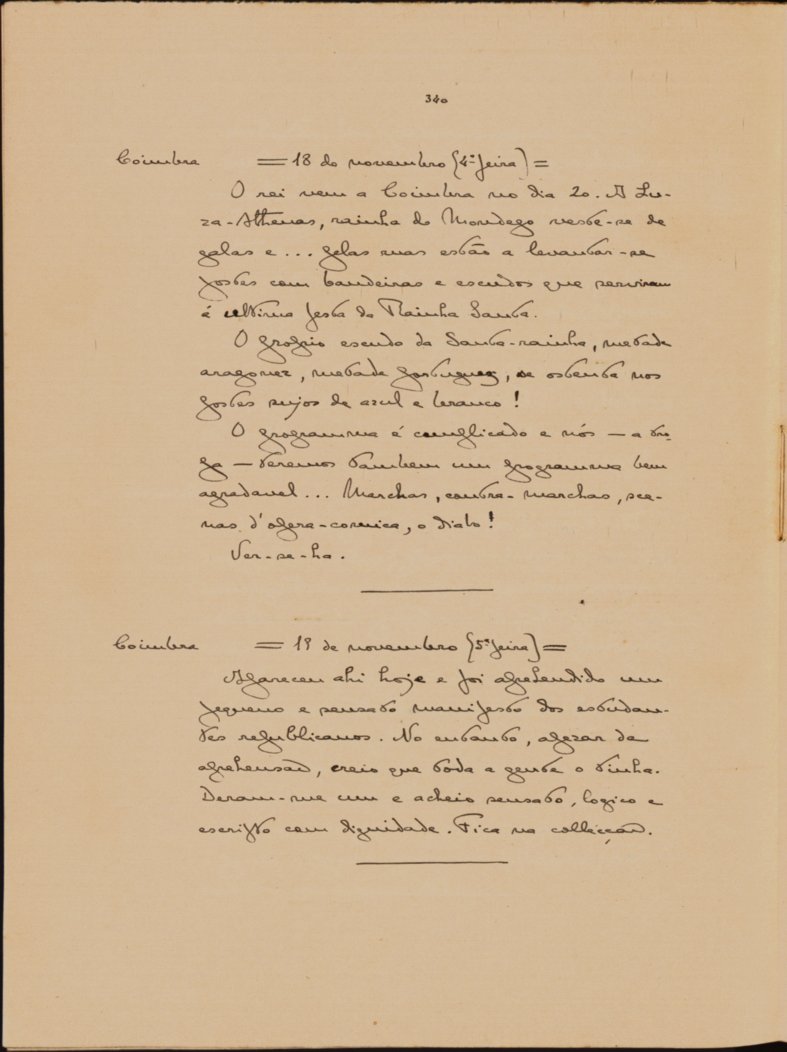 340
Coimbra = 18 de novembro (4ª feira) =
O rei vem a Coimbra no dia 20. A Lu-
za-Athenas, rainha do Mondego veste-se de
galas e ... pelas ruas estão a levantar-se
postes com bandeiras e escudos que serviram
á ultima festa da Rainha Santa.
O proprio escudo da Santa-rainha, metade
aragonez, metade portuguez, se ostenta nos
postes sujos de azul e branco!
O programma é complicado e nós — a tro-
pa — teremos tambem um programma bem
agradavel ... Marchas, contra-marchas, sce-
nas d'opera-comica, o diabo!
Ver-se-ha.
Coimbra = 19 de novembro (5ª feira) =
Appareceu ahi hoje e foi aprehendido um
pequeno e sensato manifesto dos estudan-
tes republicanos. No entanto, apezar da
aprehensão, creio que toda a gente o tinha.
Deram-me um e achei-o sensato, logico e
escripto com dignidade. Fica na collecção.